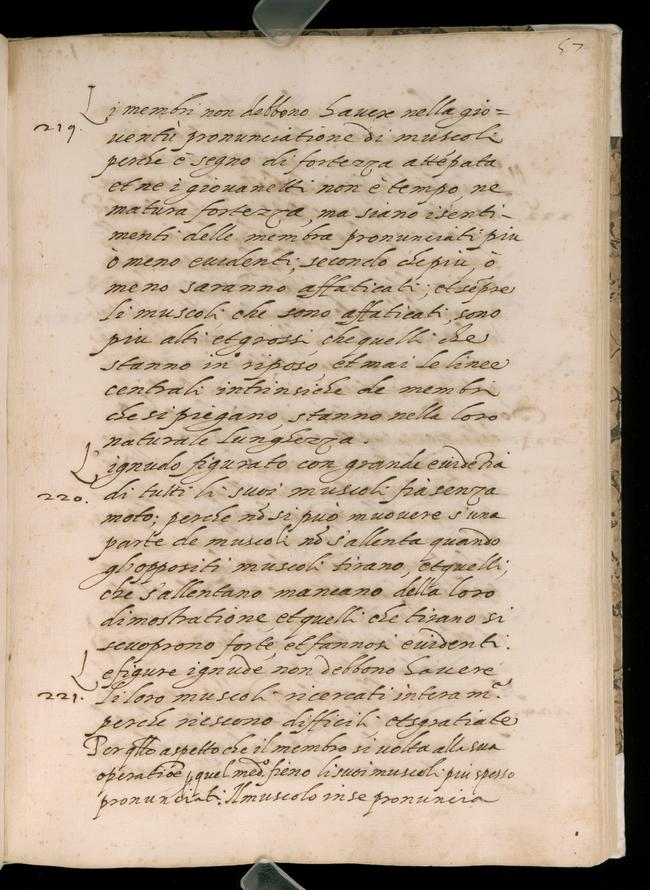 57
Li membri non debbono havere nella gio=
219. ventù pronunciatione di muscoli
perche è segno di fortezza attẽpata
et ne i giovanetti non è tempo, ne
matura fortezza, ma siano i senti-
menti delle membra pronunciati piu
ò meno evidenti, secondo che piu, ò
meno saranno affaticati, et sẽpre
li muscoli che sono affaticati, sono
piu alti et grossi che quelli che
stanno in riposo, et mai le linee
centrali intrinsiche de membri
che si piegano, stanno nella loro
naturale lunghezza.
L'ignudo figurato con grande evidẽtia
220. di tutti li suoi muscoli fia senza
moto; perche nõ si può muovere s'una
parte de muscoli nõ s'allenta quando
gl'oppositi muscoli tirano, et quelli,
che s'allentano mancano della loro
dimostratione et quelli che tirano si
scuoprono forte, et fannosi evidenti.
Le figure ignude non debbono havere
221. li loro muscoli ricercati intera mte.
perche riescono difficili et sgratiate
Per qllo aspetto che il membro si volta alla sua
operatiõe p quel medo. fieno li suoi muscoli piu spesso
pronunciati. Il muscolo in se pronuncia